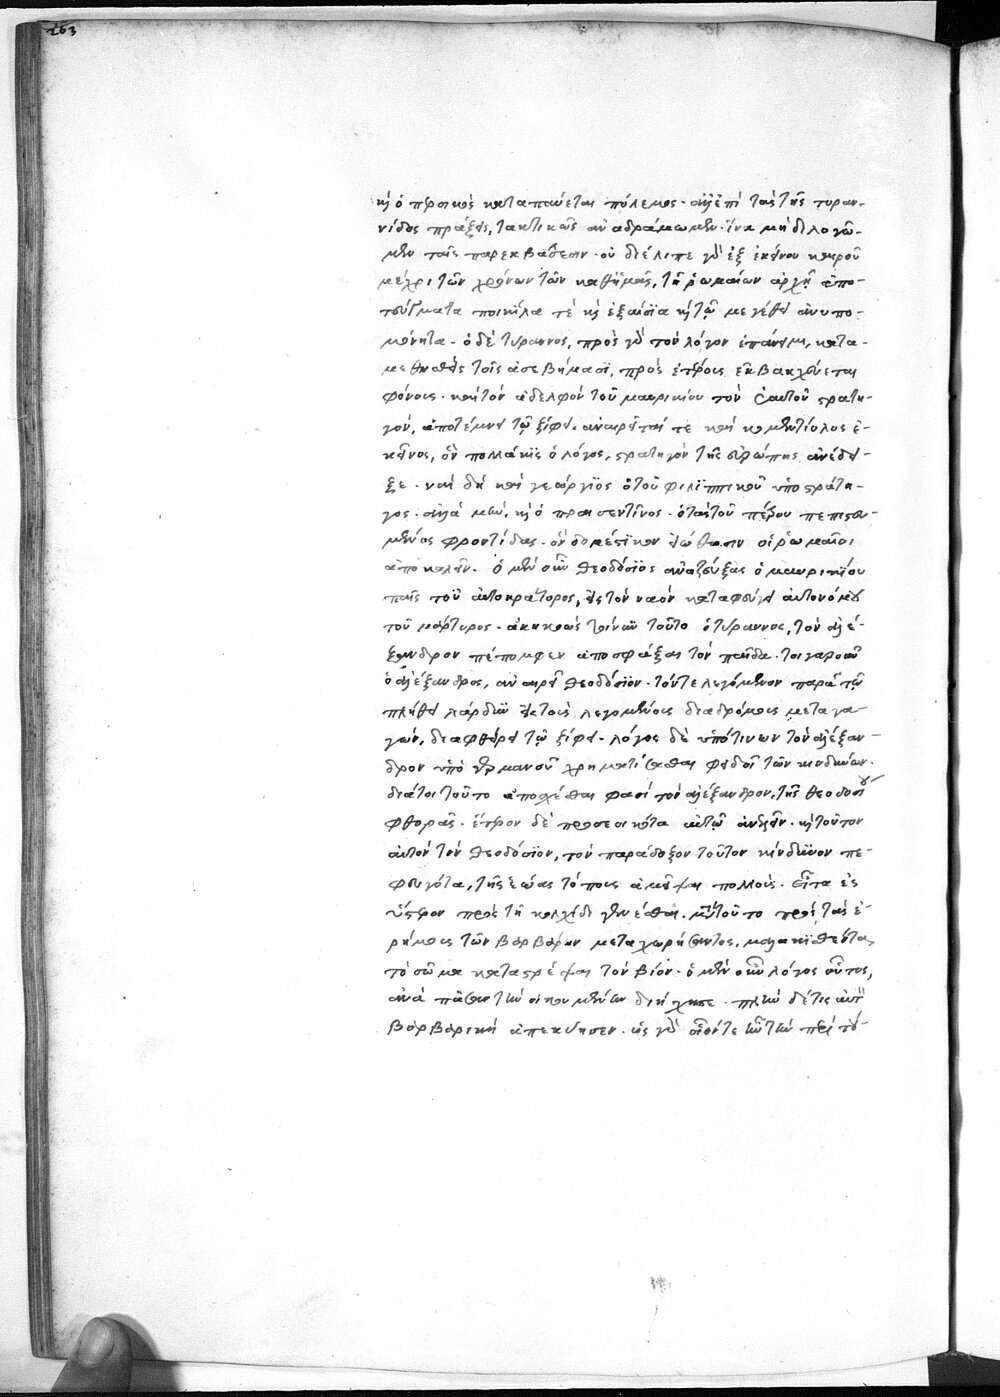 263
καὶ ὁ περσικὸς καταπαύεται πόλεμος. ἀλλ' ἐπὶ τὰς τῆς τυραν-
νίδος πράξεις, τακτικῶς ἀναδράμωμεν. ἵνα μὴ διλογῶ-
μεν ταῖς παρεκβάσεσιν. οὐ διέλιπε γὰρ ἐξ ἐκείνου καιροῦ
μέχρι τῶν χρόνων τῶν καθ' ἡμᾶς, τῇ ῥωμαίων ἀρχῇ ἀπο-
τεύγματα ποικίλα τὲ καὶ ἐξαίσια καὶ τῷ μεγέθει ἀνυπο-
μόνητα. ὁ δὲ τύραννος, πρὸς γὰρ τὸν λόγον ἐπάνειμι, κατα-
μεθυσθεὶς τοῖς ἀσεβήμασι, πρὸς ἑτέρους ἐκβακχεύεται
φόνους. καὶ τὸν ἀδελφὸν τοῦ μαυρικίου τὸν ἑαυτοῦ στρατη-
γὸν, ἀποτέμνει τῷ ξίφει. ἀναιρεῖται τε καὶ κομεντίολος ἐ-
κεῖνος, ὃν πολλάκις ὁ λόγος, στρατηγὸν τῆς εὐρώπης ἀνέδει-
ξε. ναὶ δὴ καὶ γεώργιος ὁ τοῦ φιλιππικοῦ ὑποστράτη-
γος. ἀλλὰ μὴν, καὶ ὁ πραισεντῖνος. ὁ τὰς τοῦ πέτρου πεπιστευ-
μένος φροντίδας. ὃν δομέστικον εἰώθασιν οἱ ῥωμαῖοι
ἀποκαλεῖν. ὁ μὲν οὖν θεοδόσιος ἀναζεύξας ὁ μαυρικίου
παῖς τοῦ αὐτοκράτορος, εἰς τὸν ναὸν καταφεύγει αὐτονόμου
τοῦ μάρτυρος. ἀκηκοὼς τοίνυν τοῦτο ὁ τύραννος, τὸν ἀλέ-
ξανδρον πέπομφεν ἀποσφάξαι τὸν παῖδα. τοιγαροῦν
ὁ ἀλέξανδρος, ἀναιρεῖ θεοδόσιον. τόν τε λεγόμενον παρὰ τῷ
πλήθει λάρδυν εἰς τοὺς λεγομένους διαδρόμους μεταγα-
γών, διαφθείρει τῷ ξίφει. λόγος δὲ ὑπό τινων τὸν ἀλέξαν-
δρον ὑπὸ γερμανοῦ χρηματίσασθαι φειδοῖ τῶν κινδύνων.
διά τοι τοῦτο ἀποσχέσθαι φασὶ τὸν ἀλέξανδρον, τῆς θεοδοσίου
φθορᾶς. ἕτερον δὲ προσεοικότα αὐτῷ ἀνελεῖν. καὶ τοῦτον
αὐτὸν τὸν θεοδόσιον, τὸν παράδοξον τοῦτον κίνδυνον πε-
φευγότα, τῆς ἑώας τόπους ἀμεῖψαι πολλούς. εἶτα ἐς
ὕστερον πρὸς τῇ κολχίδι γενέσθαι. μετὰ τοῦτο πρὸς τὰς ἐ-
ρήμους τῶν βαρβάρων μεταχωρήσαντος, μαλακισθέντα
τὸ σῶμα καταστρέψαι τὸν βίον. ὁ μὲν οὖν λόγος οὗτος,
ἀνὰ πᾶσαν τὴν οἰκουμένην διήχησε. πλάνη δέ τις αὐτὸν
βαρβαρικὴ ἀπεκύησεν. ὡς γὰρ οἷόν τε ἦν τὴν περὶ τού-